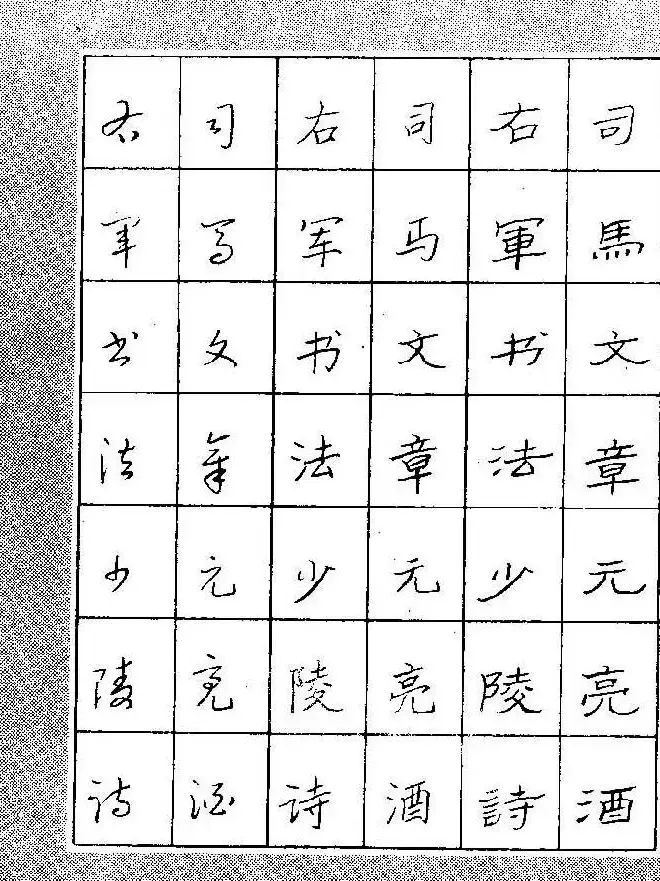 司馬文章元亮酒
右軍书法少陵詩
司马文章元亮酒
右军书法少陵诗
司马文章元亮酒
右军书法少陵诗